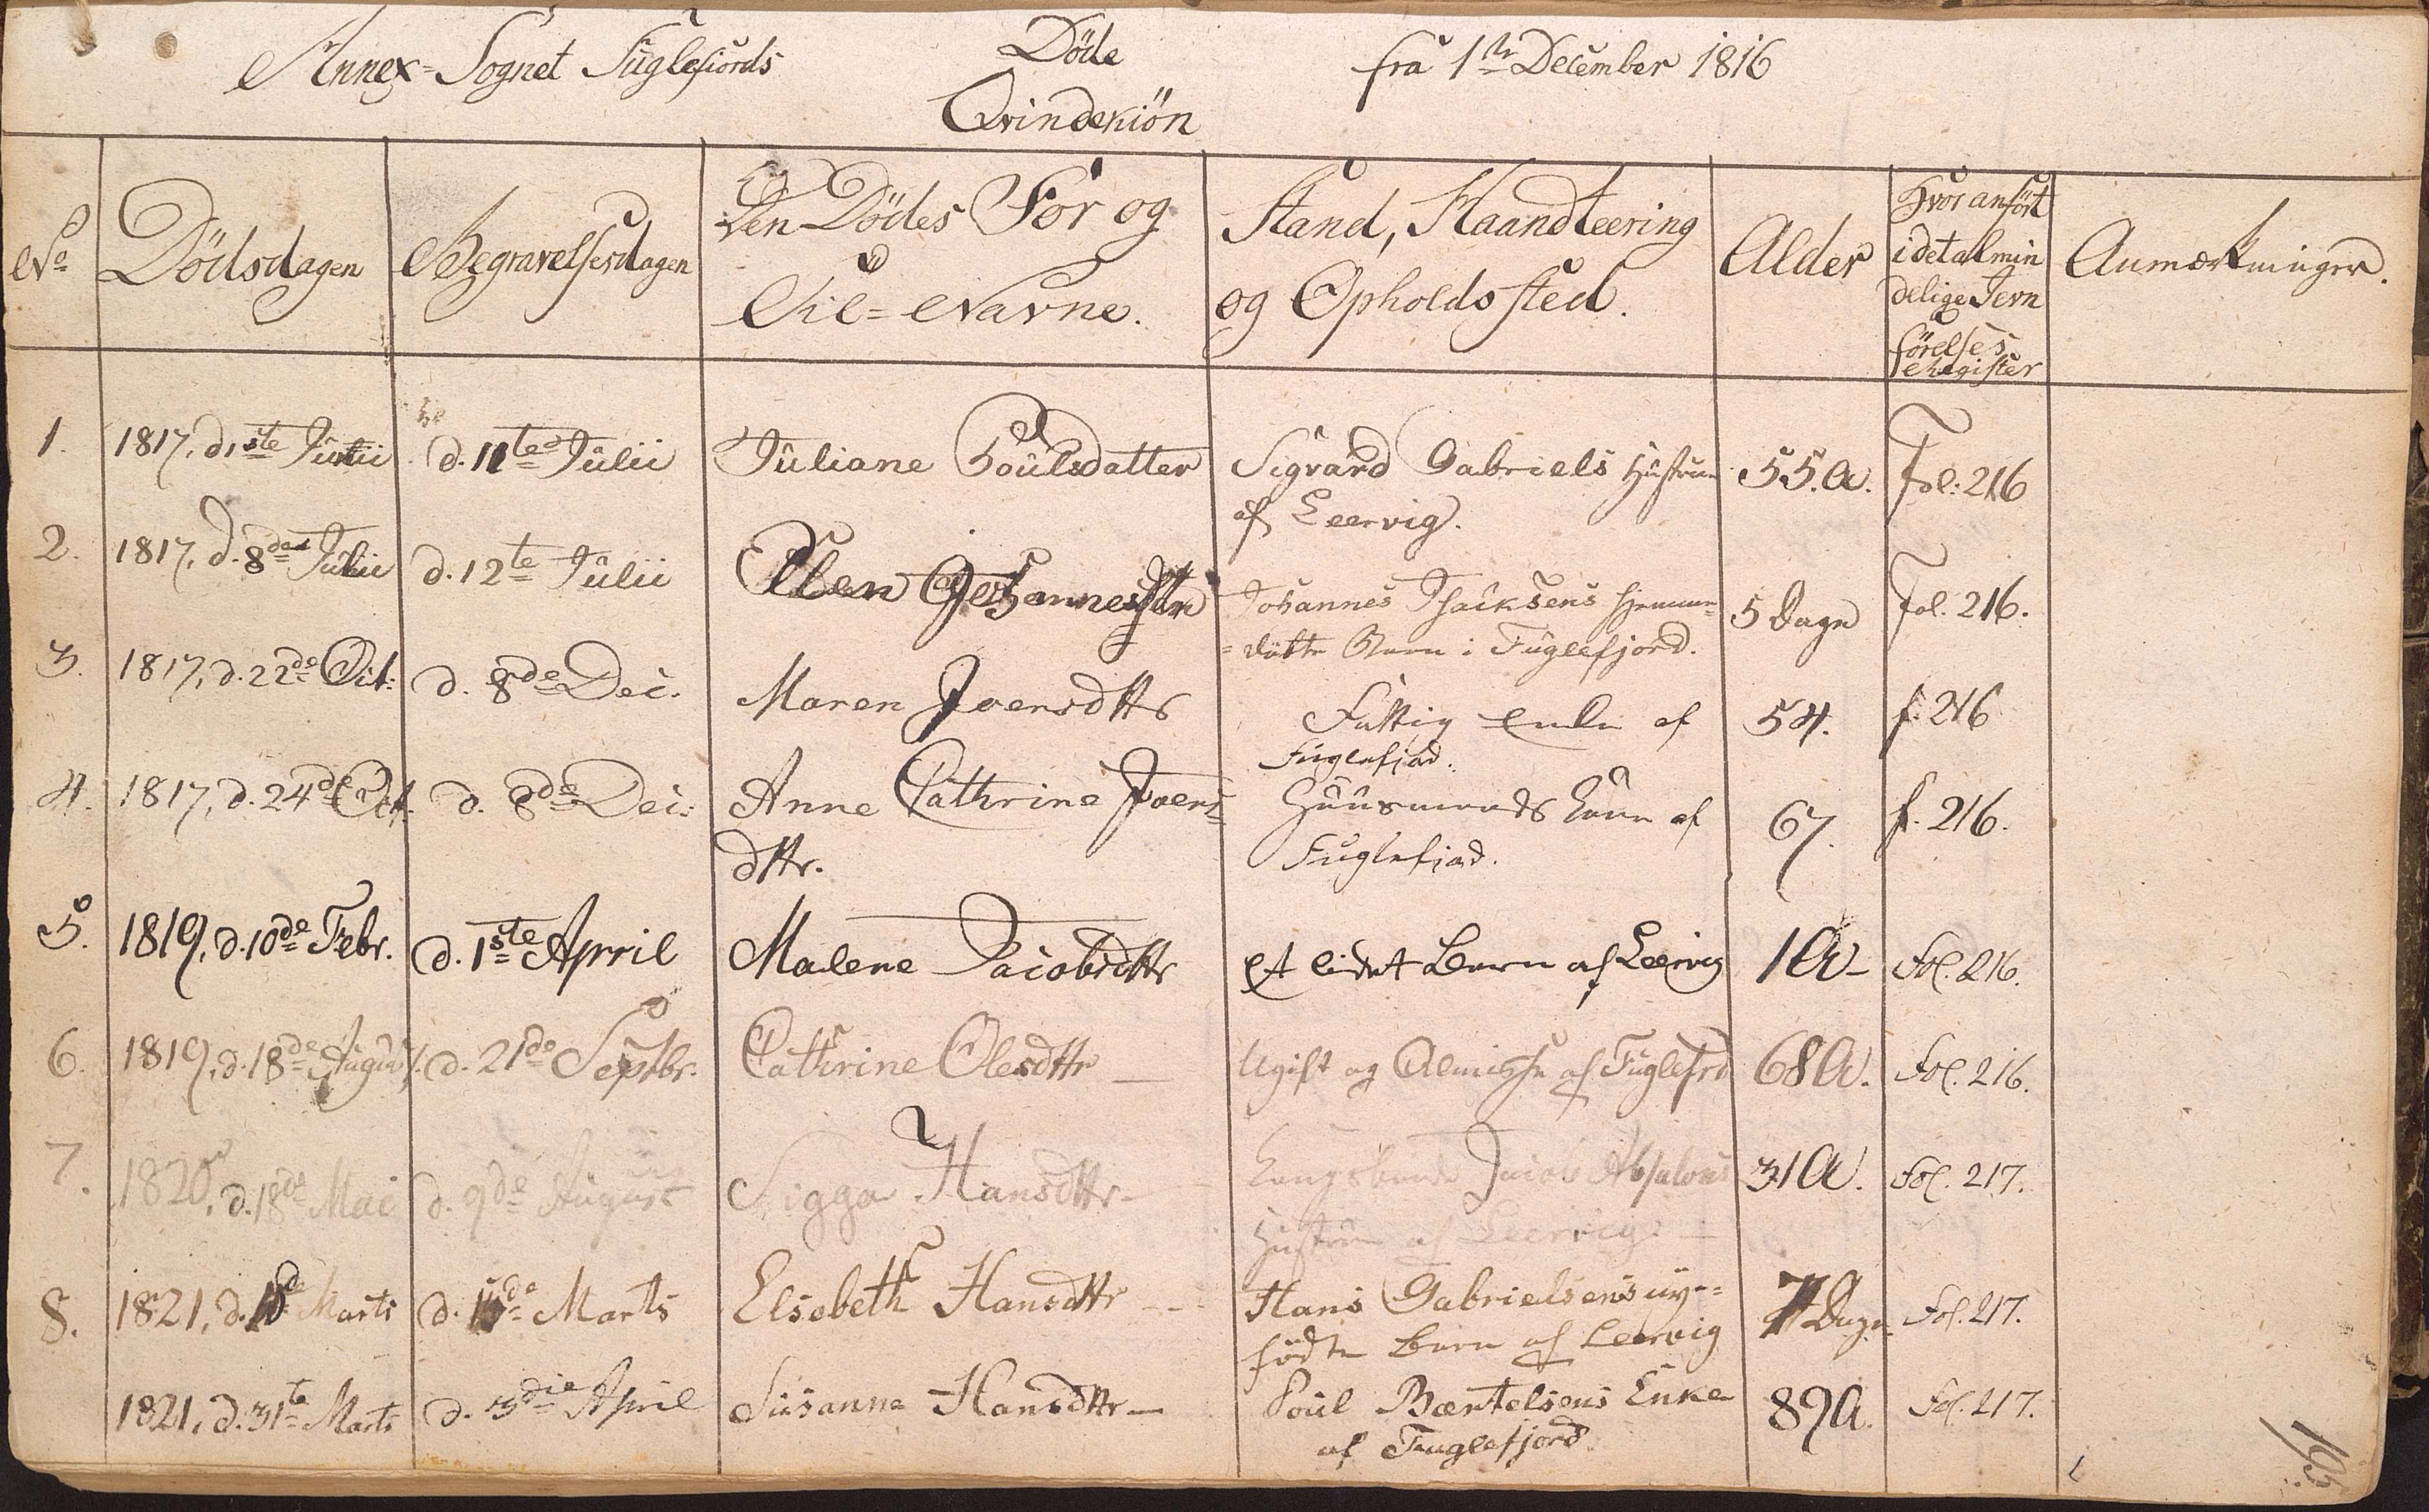 Annex-Sognet Fuglefiords Döde fra 1ste December 1816
Qvindekiön
No Dödsdagen Begravelsesdagen Den Dödes For og Til-Navne. Stand, Haandteering og Opholdssted. Alder Hvor anfört i det almindelige Jevnförelses Register Anmærkninger.
1. 1817, d. 1ste Julii d. 11te Julii Juliane Poulsdatter Sigvard Gabriels Hustrue 55.A. Fol: 216
af Leervig.
2. 1817, d. 8de Julii d. 12te Julii Elen Johannesdttr Johannes Isaaksens hiemme= 5 Dage Fol. 216.
=döbte Barn i Fuglefjord.
3. 1817, d. 22de Oct: d. 8de Dec. Maren Joensdttr Fattig Enke af 54. f. 216
Fuglefjord.
4. 1817, d. 24de Oct. d. 8de Dec: Anne Cathrine Joens= Huusmands Kone af 67. f. 216.
dttr. Fuglefjord.
5. 1819, d. 10de Febr. d. 1ste April Malene Jacobsdttr et lidet Barn af Leervig 1 A- Fol. 216.
6. 1819, d. 18de August. d. 21de Septbr. Cathrine Olesdttr — Ugift og Almisse af Fuglefrd 68 A. Fol. 216.
7. 1820, d. 18de Mai d. 9de August Sigga Hansdttr- Kongsbonde Jacob Absalons 31 A. Fol. 217.
Hustrue af Leervig. —
8. 1821, d. Marts d. Marts Elsebeth Hansdttr -- Hans Gabrielsens ny-= 7 Dage. Fol. 217.
födte Barn af Leervig
1821, d. 31te Marts d. 3die April Susanne Hansdttr — Poul Bærtelsens Enke 89 A. Fol. 217.
af Fuglefjord
195